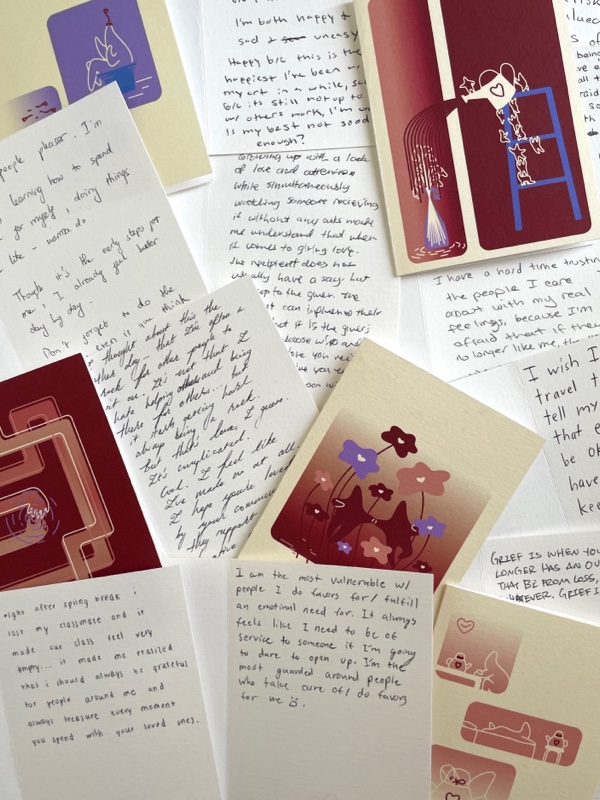 I'm both happy &
sad & uneasy
Happy b/c this is the
happiest I've been w/
my art in a while, sad
b/c its still not up to
w/ others work, I'm un
Is my best not good
enough?
people pleaser. I'm
learning how to spend
for myself, doing things
like - wanna do.
Though it's the early steps for
me, I already feel better
day by day.
Don't forget to do the
even if you think
Growing up with a lack
of love and attention
while simultaneously
watching someone receiving
it without any asks made
me understand that when
it comes to giving love.
the recipient does not
usually have a say. but
up to the giver. The
it can influence their
but it is the giver's
choose who and
I have a hard time trusting
the people I care
about with my real
feelings, because I'm
afraid that if they
no longer like me, the
thought about this the
other day - that I'm often a
rock for other people to
It's not that I
hate helping others and being
there for others... but
it starts getting hard
always being a rock.
but that's love, I guess.
It's complicated.
Cal. I feel like
I've made no
I hope you're loved
by your
they support
I wish I
travel t
tell my
that e
be ok
have
kee
GRIEF IS WHEN YOU
LONGER HAS AN OU
THAT BE FROM LOSS,
WHATEVER, GRIEF I
right after spring break i
lost my classmate and it
made our class feel very
empty... it made me realized
that i should always be grateful
for people around me and
always treasure every moment
you spend with your loved ones.
I am the most vulnerable w/
people I do favors for/ fulfill
an emotional need for. It always
feels like I need to be of
service to someone if I'm going
to dare to open up. I'm the
most guarded around people
who take care of/ do favors
for me :(.